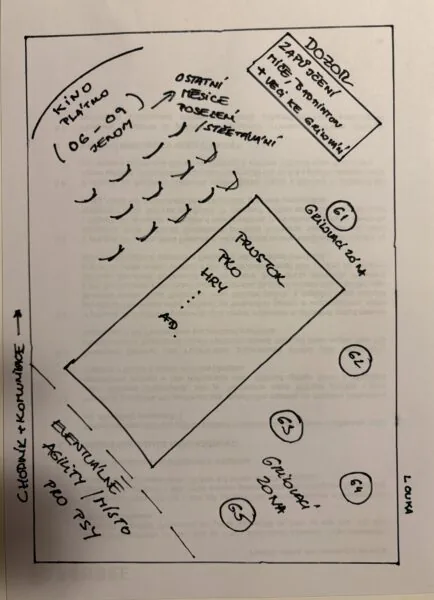 KINO
PLÁTNO
(06-09)
JENOM
OSTATNÍ
MĚSÍCE
POSEZENÍ
/STŘETÁVÁNÍ
DOZOR
ZAPŮJČENÍ
MÍČE, BADMINTON
+ VĚCI KE GRILOVÁNÍ
G1
GRILOVACÍ ZÓNA
PROSTOR
PRO
HRY
....
ATD.
G2
G3
GRILOVACÍ
ZÓNA
G4
G5
CHODNÍK + KOMUNIKACE →
EVENTUÁLNĚ
AGILITY / MÍSTO
PRO PSY
LOUKA